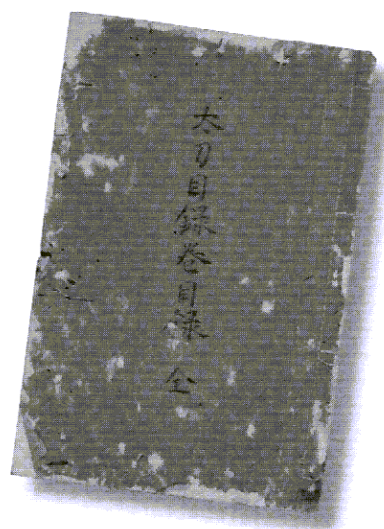 太刀目録巻目録 全